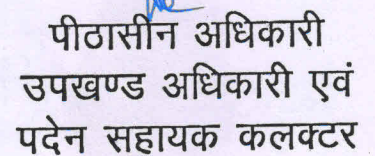 पीठासीन अधिकारी
उपखण्ड अधिकारी एवं
पदेन सहायक कलक्टर